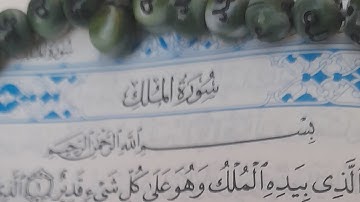 سُورَةُ المُلْكِ
بِسْمِ اللَّهِ الرَّحْمَٰنِ الرَّحِيمِ
الَّذِى بِيَدِهِ الْمُلْكُ وَهُوَ عَلَىٰ كُلِّ شَىْءٍ قَدِيرٌ ١